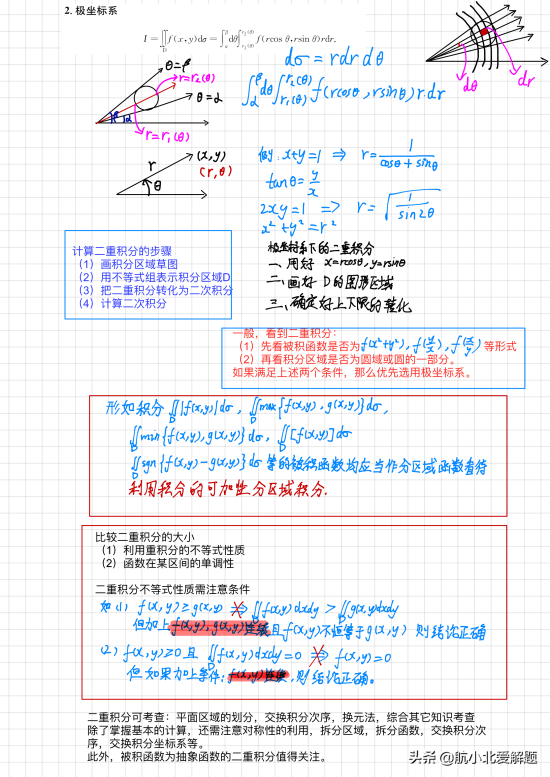 2. 极坐标系
I = ∬_D f(x, y)dσ = ∫_α^β dθ∫_{r₁(θ)}^{r₂(θ)} f(rcos θ, rsin θ)rdr.
dσ = rdrdθ
dθ dr
θ=β
r=r₂(θ)
θ=α
β α
r=r₁(θ)
∫_α^β dθ∫_{r₁(θ)}^{r₂(θ)} f(rcosθ, rsinθ) r dr
r (x,y)
(r,θ)
θ
例: x+y=1 ⇒ r= 1/(cosθ+sinθ)
tanθ= y/x
2xy=1 => r= √(1/sin2θ)
x²+y²=r²
极坐标系下的二重积分
一、用好 x=rcosθ, y=rsinθ
二、画好 D的图形区域
三、确定好上下限的转化
计算二重积分的步骤
（1）画积分区域草图
（2）用不等式组表示积分区域D
（3）把二重积分转化为二次积分
（4）计算二次积分
一般，看到二重积分：
（1）先看被积函数是否为f(x²+y²), f(y/x), f(x/y)等形式
（2）再看积分区域是否为圆域或圆的一部分。
如果满足上述两个条件，那么优先选用极坐标系。
形如积分 ∬_D|f(x,y)|dσ, ∬_D max{f(x,y), g(x,y)}dσ,
∬_D min{f(x,y), g(x,y)}dσ, ∬_D[f(x,y)]dσ
∬_D sgn{f(x,y)-g(x,y)}dσ 等的被积函数均应当作分区域函数看待
利用积分的可加性分区域积分.
比较二重积分的大小
（1）利用重积分的不等式性质
（2）函数在某区间的单调性
二重积分不等式性质需注意条件
如 (1) f(x,y)≥g(x,y) ⇒ ∬_D f(x,y)dxdy > ∬_D g(x,y)dxdy
但加上f(x,y), g(x,y)连续且f(x,y)不恒等于g(x,y) 则结论正确
(2) f(x,y)≥0 且 ∬_D f(x,y)dxdy=0 ⇒ f(x,y)=0
但如果加上条件: f(x,y)连续, 则结论正确。
二重积分可考查：平面区域的划分，交换积分次序，换元法，综合其它知识考查
除了掌握基本的计算，还需注意对称性的利用，拆分区域，拆分函数，交换积分次
序，交换积分坐标系等。
此外，被积函数为抽象函数的二重积分值得关注。
头条 @航小北爱解题